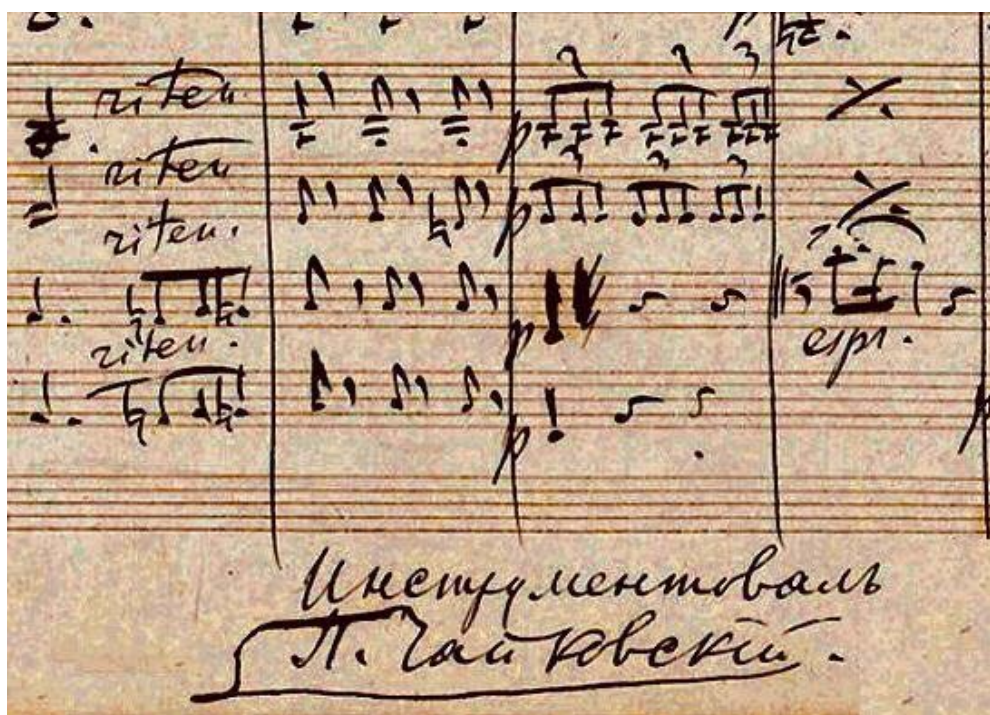 riten.
riten
riten.
riten.
p 3 3 3
p 3 3 3
p
p
espr.
p
Инструментовалъ
П. Чайковскій.